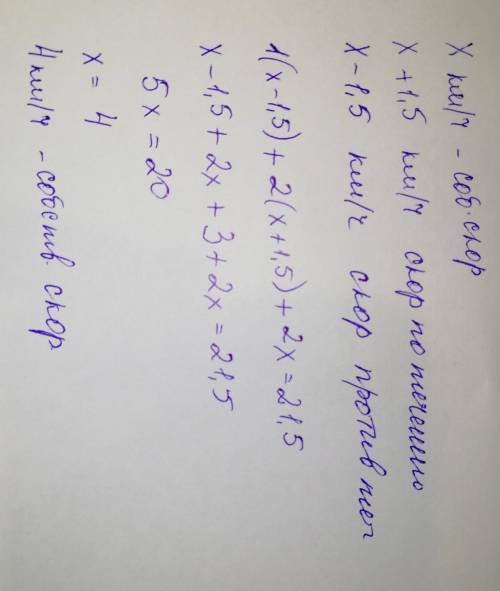 x км/ч - соб. скор
x + 1,5 км/ч скор по течению
x - 1,5 км/ч скор против теч
1(x-1,5) + 2(x+1,5) + 2x = 21,5
x - 1,5 + 2x + 3 + 2x = 21,5
5x = 20
x = 4
4 км/ч - собств. скор